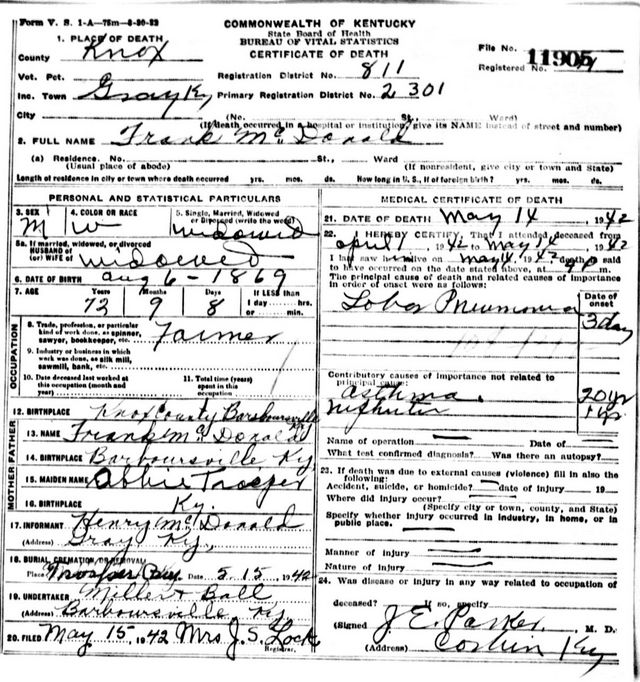 Form V. S. 1-A—75m—6-20-32
COMMONWEALTH OF KENTUCKY
State Board of Health
BUREAU OF VITAL STATISTICS
CERTIFICATE OF DEATH
1. PLACE OF DEATH
County Knox
File No. 11905
Registered No.
Vot. Pct.
Registration District No. 811
Inc. Town Gray Ky
Primary Registration District No. 2301
City (No. St., Ward)
(If death occurred in a hospital or institution, give its NAME instead of street and number)
2. FULL NAME Frank McDonald
(a) Residence. No. St., Ward
(Usual place of abode) (If nonresident, give city or town and State)
Length of residence in city or town where death occurred yrs. mos. ds. How long in U. S., if of foreign birth? yrs. mos. ds.
PERSONAL AND STATISTICAL PARTICULARS
3. SEX M
4. COLOR OR RACE W
5. Single, Married, Widowed or Divorced (write the word) widowed
5a. If married, widowed, or divorced
HUSBAND of
(or) WIFE of widowed
6. DATE OF BIRTH Aug 6 - 1869
7. AGE Years Months Days If LESS than
72 9 8 1 day hrs. or min.
OCCUPATION
8. Trade, profession, or particular kind of work done, as spinner, sawyer, bookkeeper, etc. Farmer
9. Industry or business in which work was done, as silk mill, sawmill, bank, etc.
10. Date deceased last worked at this occupation (month and year)
11. Total time (years) spent in this occupation
12. BIRTHPLACE Knox County Barboursville Ky
FATHER
13. NAME Frank McDonald
14. BIRTHPLACE Barboursville Ky,
MOTHER
15. MAIDEN NAME Abbie Prosper
16. BIRTHPLACE Ky.
17. INFORMANT Henry McDonald
(Address) Gray Ky,
18. BURIAL, CREMATION OR REMOVAL
Place Date 5-15, 1942
19. UNDERTAKER Miller & Ball
(Address) Barboursville Ky
20. FILED May 15, 1942 Mrs J. S. Lock
Registrar.
MEDICAL CERTIFICATE OF DEATH
21. DATE OF DEATH May 14 1942
22. I HEREBY CERTIFY, That I attended deceased from
April 1, 1942 to May 14, 1942
I last saw h alive on May 4, 1942 death is said
to have occurred on the date stated above, at m.
The principal cause of death and related causes of importance in order of onset were as follows:
Date of onset
Lobar Pneumonia 3 day
Contributory causes of importance not related to principal cause:
Asthma. 20 yr
Nephritis 1 yr
Name of operation Date of
What test confirmed diagnosis? Was there an autopsy?
23. If death was due to external causes (violence) fill in also the following:
Accident, suicide, or homicide? date of injury 19
Where did injury occur?
(Specify city or town, county, and State)
Specify whether injury occurred in industry, in home, or in public place.
Manner of injury
Nature of injury
24. Was disease or injury in any way related to occupation of
deceased? If so, specify
(Signed J. E. Parker, M. D.
(Address) Corbin Ky